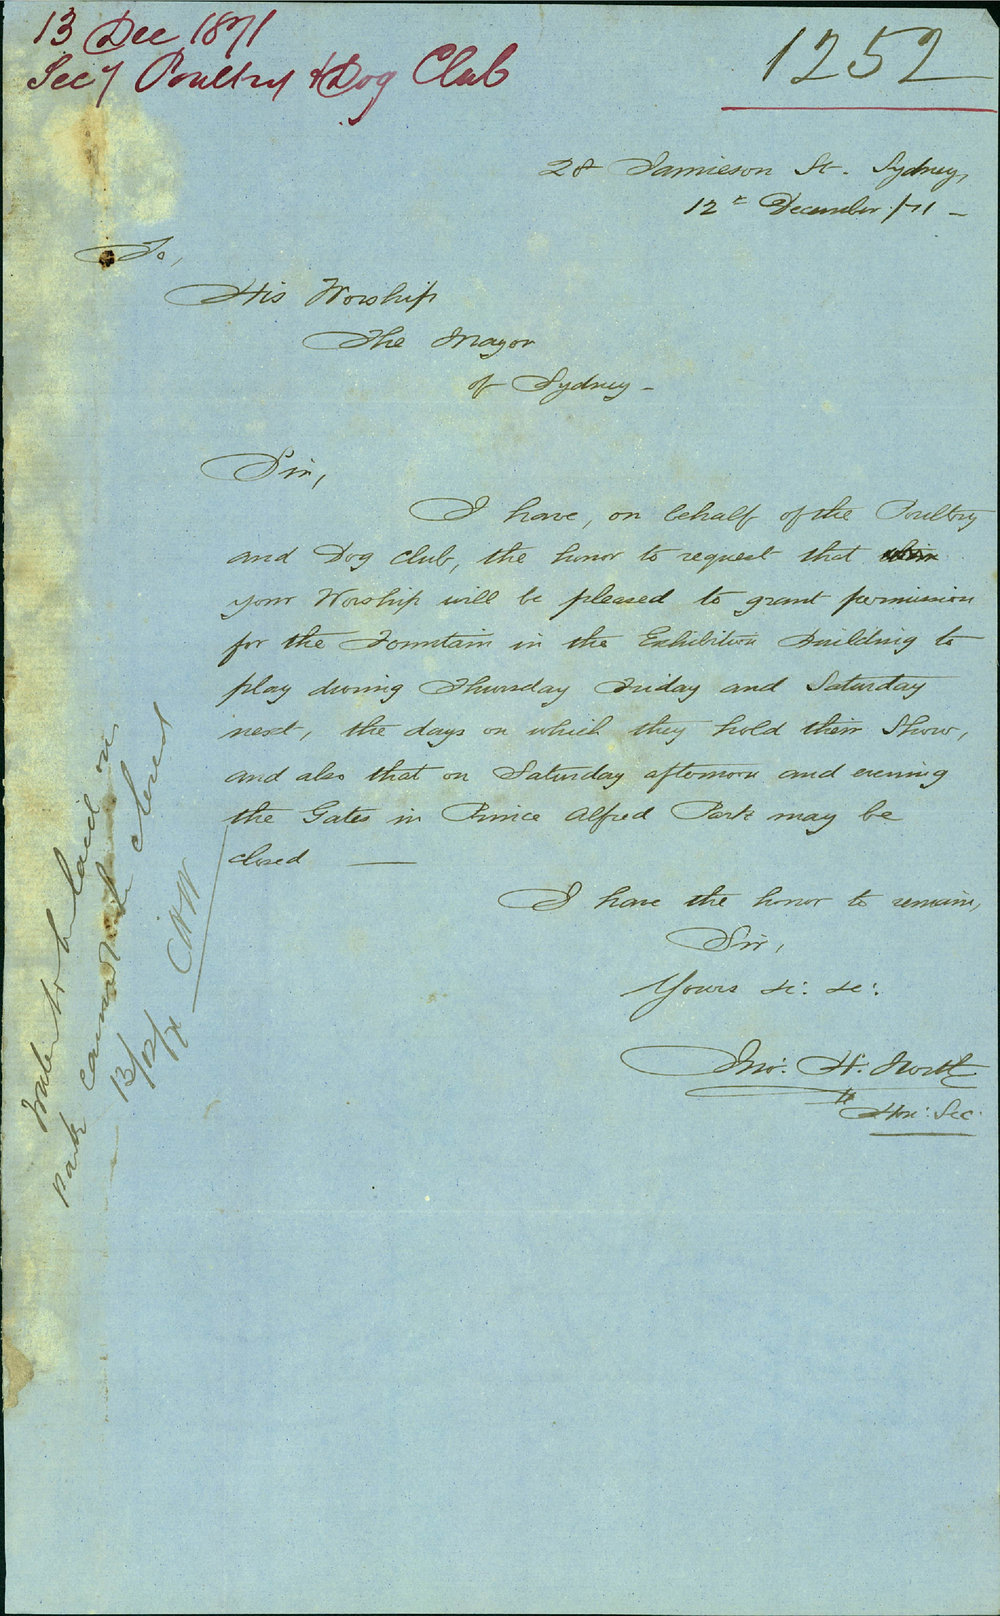 13 Dec 1871
Secy Poultry & Dog Club
1252
28 Jamieson St. Sydney,
12th December /71 -
To,
His Worship
The Mayor
of Sydney -
Sir,
I have, on behalf of the Poultry
and Dog Club, the honor to request that
your Worship will be pleased to grant permission
for the Fountain in the Exhibition Building to
play during Thursday Friday and Saturday
next, the days on which they hold their Show,
and also that on Saturday afternoon and evening
the Gates in Prince Alfred Park may be
closed —
I have the honor to remain,
Sir,
Yours &c. &c.
Jno. H. North
Hon: Sec.
Water to be laid on
Park cannot be closed
13/12/71